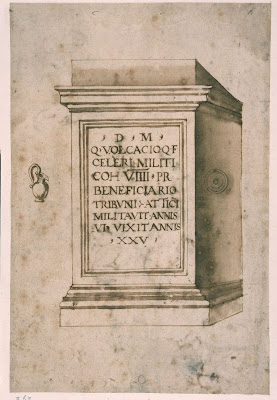 D · M ·
Q · VOLCACIO · Q · F
CELERI · MILITI
COH · VIIII · PR
BENEFICIARIO
TRIBVNI · ATTICI
MILITAVIT ANNIS
VI · VIXIT ANNIS
XXV ·